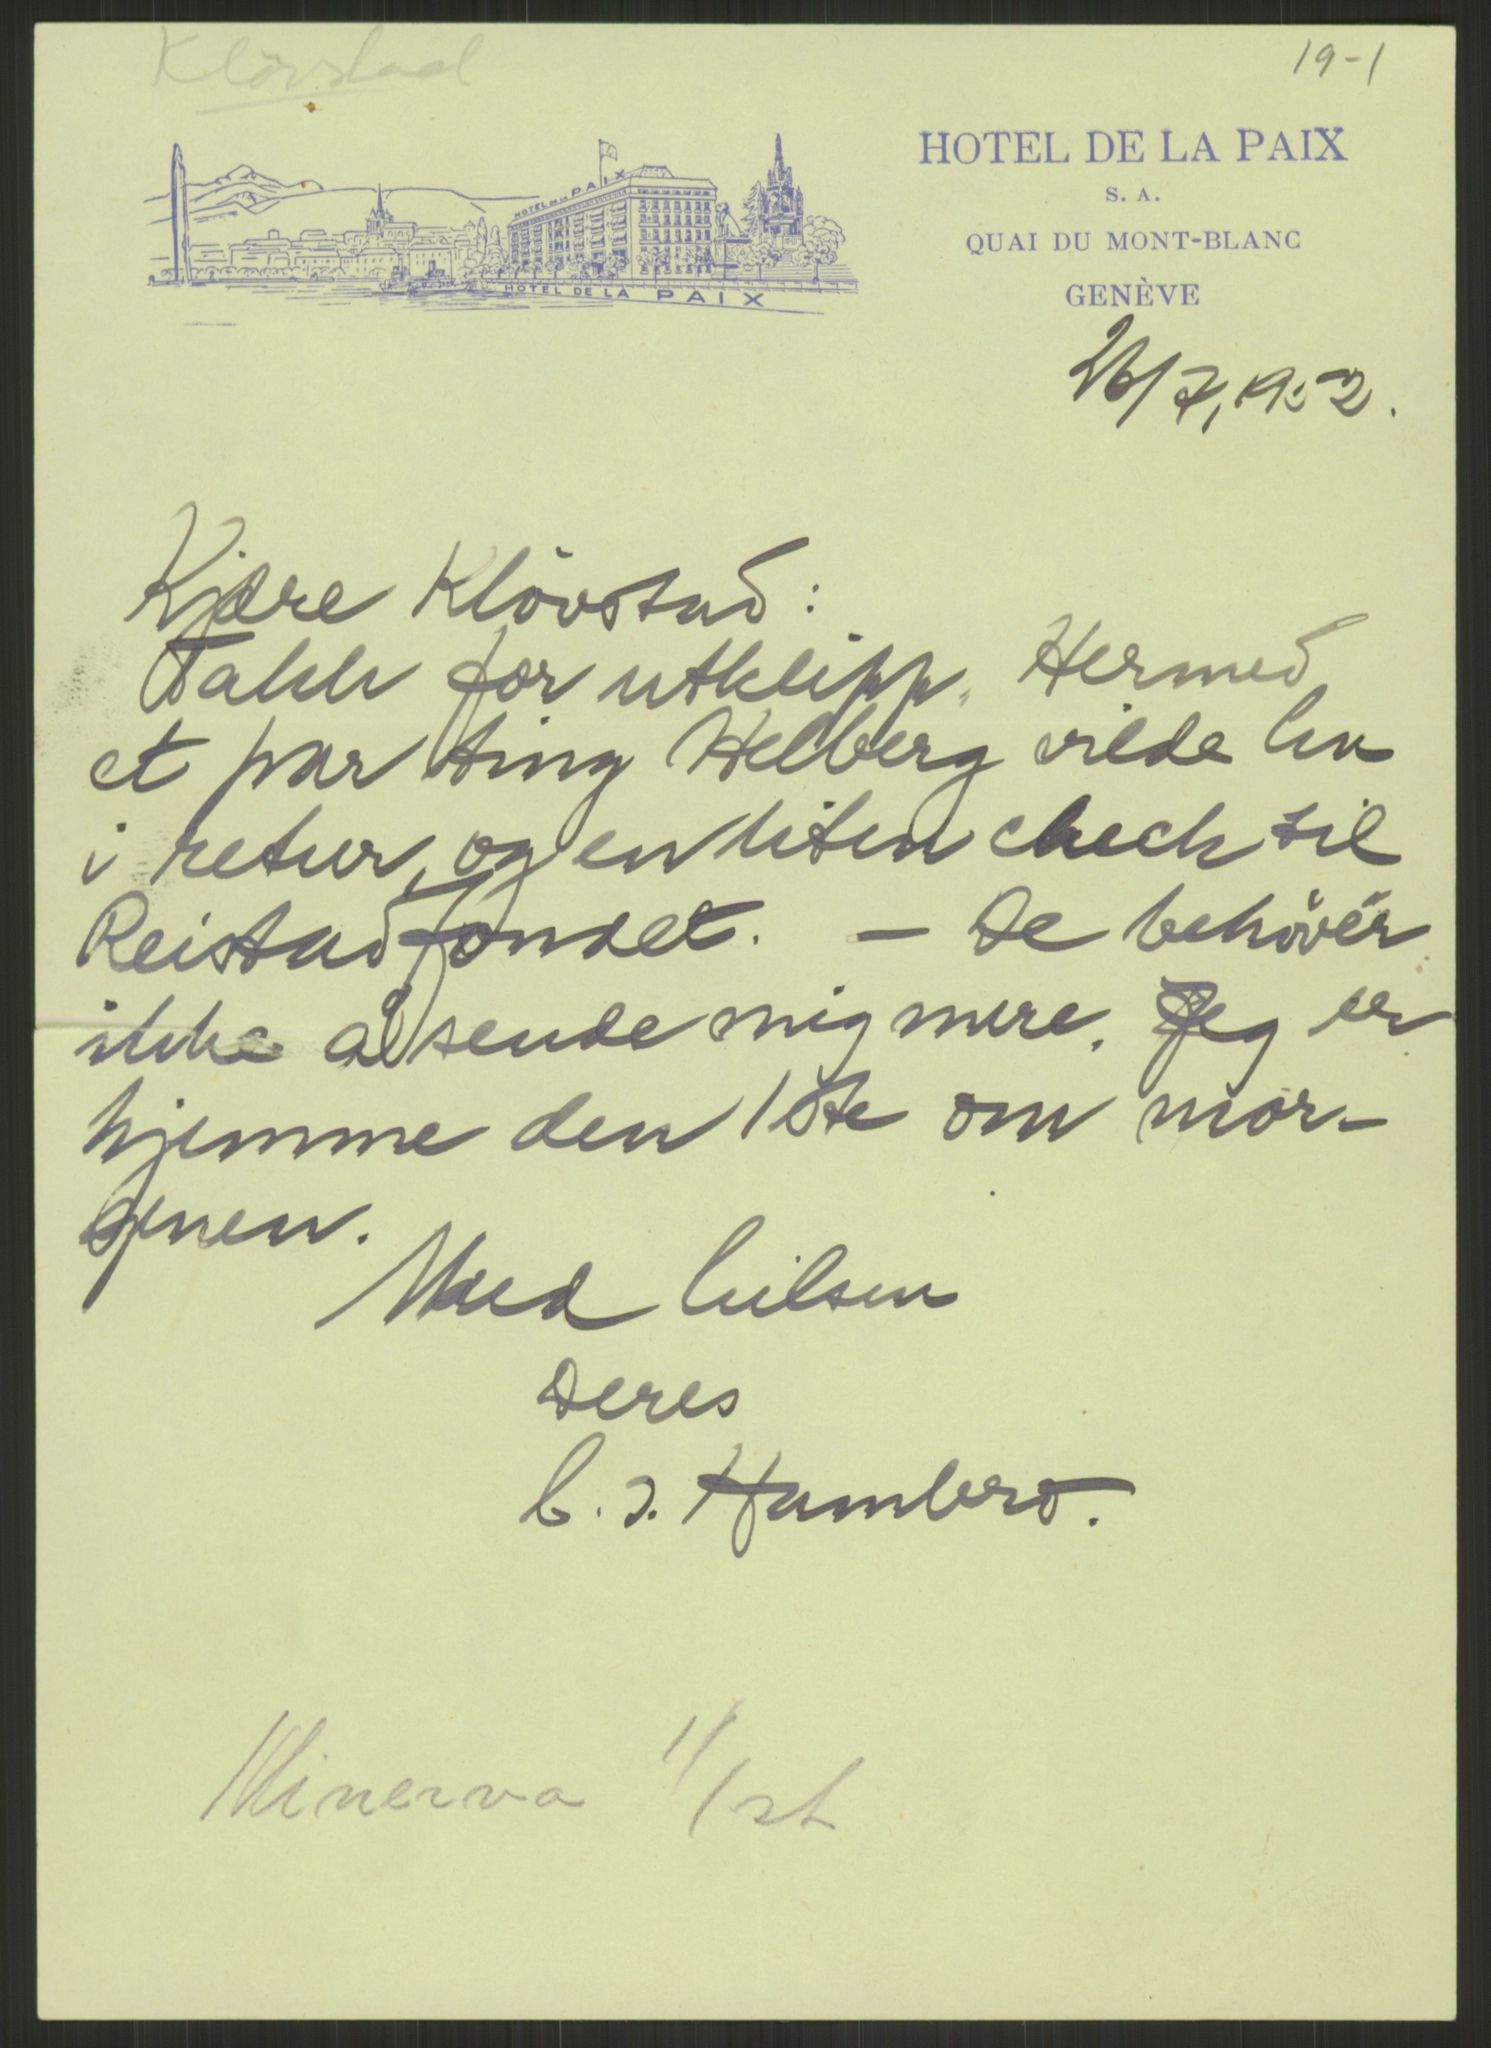 Klövstad
19-1
HOTEL DE LA PAIX
HOTEL DE LA PAIX
HOTEL DE LA PAIX
S. A.
QUAI DU MONT-BLANC
GENÈVE
26/7, 1952.
Kjære Klövstad:
Takk for utklipp. Hermed
et par ting Helberg vilde ha
i retur, og en liten check til
Reistadfondet. — De behöver
ikke å sende mig mere. Jeg er
hjemme den 1ste om mor-
genen.
Med hilsen
Deres
C. J. Hambro.
Minerva